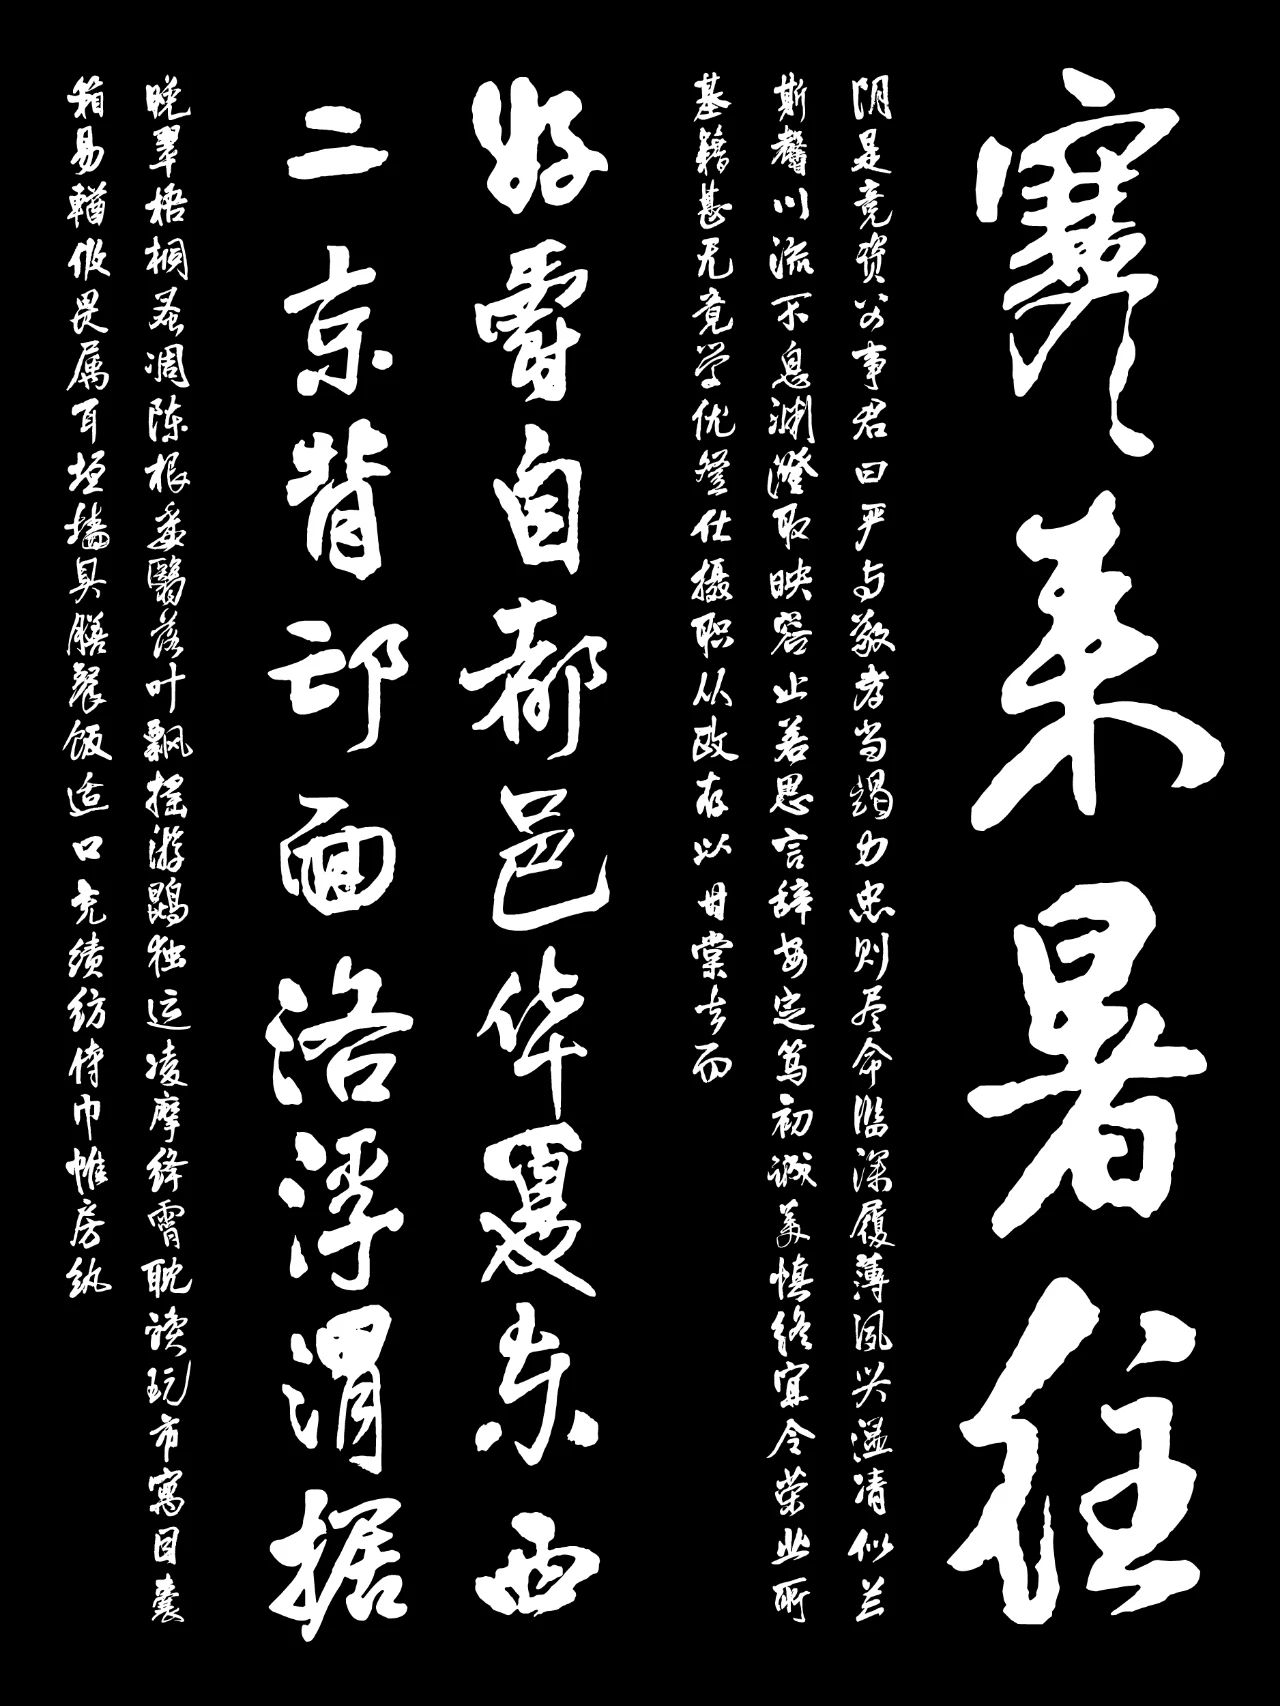 寒来暑往
阴是竞资父事君曰严与敬孝当竭力忠则尽命临深履薄夙兴温凊似兰
斯馨川流不息渊澄取映容止若思言辞安定笃初诚美慎终宜令荣业所
基籍甚无竟学优登仕摄职从政存以甘棠去而
好爵自都邑华夏东西
二京背邙面洛浮渭据
晚翠梧桐蚤凋陈根委翳落叶飘摇游鹍独运凌摩绛霄耽读玩市寓目囊
箱易輶攸畏属耳垣墙具膳餐饭适口充绩纺侍巾帷房纨